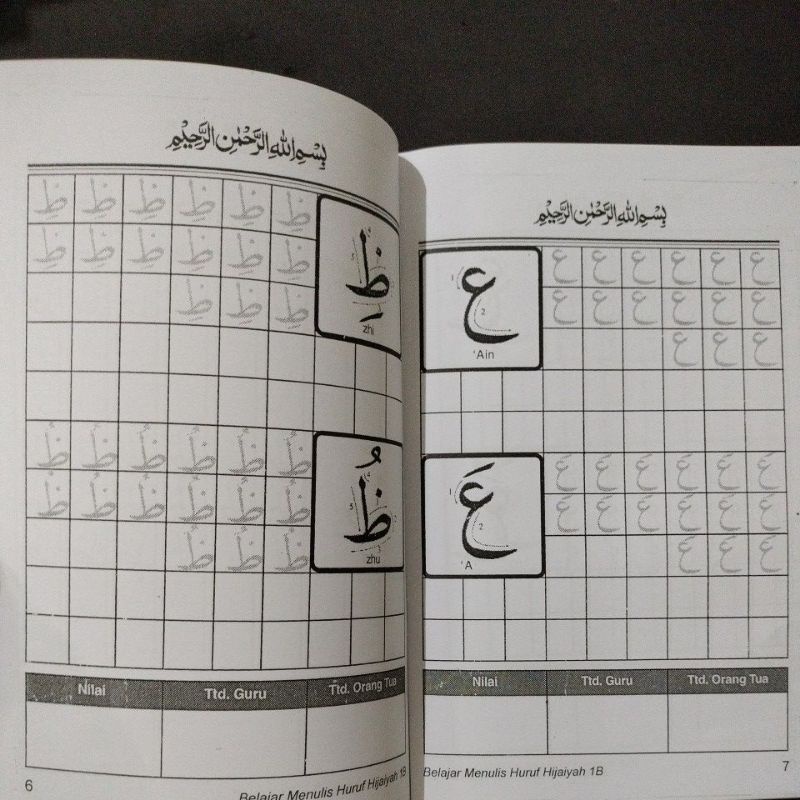 بِسْمِ اللهِ الرَّحْمٰنِ الرَّحِيْمِ
ظِ
zhi
ظِ ظِ ظِ ظِ ظِ ظِ
ظِ ظِ ظِ ظِ ظِ ظِ
ظِ ظِ ظِ
ظُ
zhu
ظُ ظُ ظُ ظُ ظُ ظُ
ظُ ظُ ظُ ظُ ظُ ظُ
ظُ ظُ ظُ
Nilai Ttd. Guru Ttd. Orang Tua
6 Belajar Menulis Huruf Hijaiyah 1B
بِسْمِ اللهِ الرَّحْمٰنِ الرَّحِيْمِ
ع
'Ain
ع ع ع ع ع ع
ع ع ع ع ع ع
ع ع ع
عَ
'A
عَ عَ عَ عَ عَ عَ
عَ عَ عَ عَ عَ عَ
عَ عَ عَ
Nilai Ttd. Guru Ttd. Orang Tua
Belajar Menulis Huruf Hijaiyah 1B 7